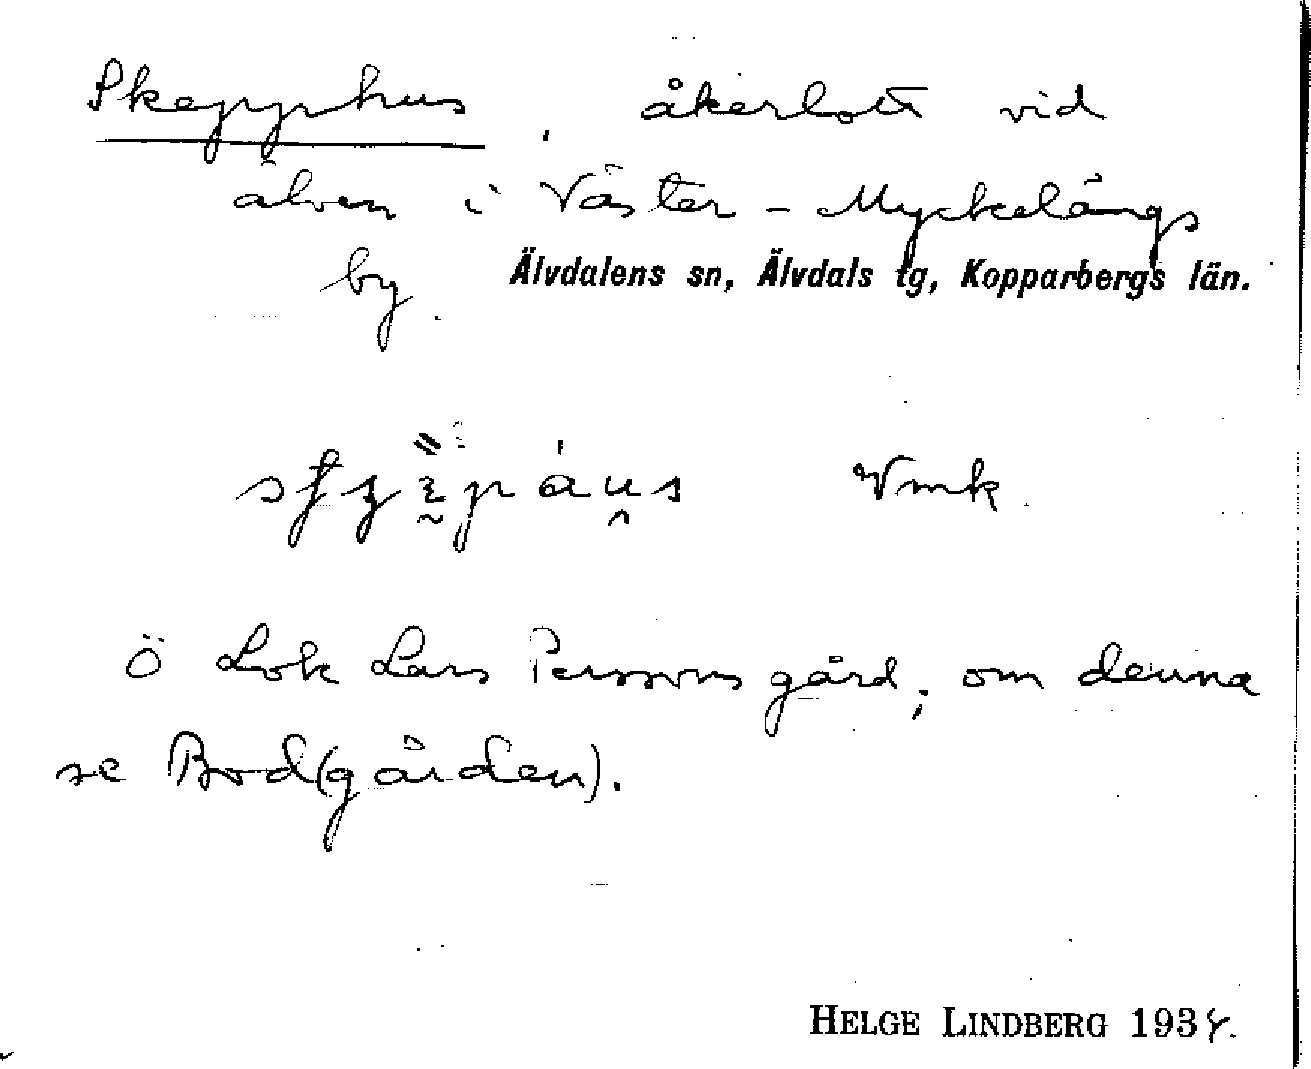 Skepphus, åkerlott vid
älven i Väster-Myckelängs
by. Älvdalens sn, Älvdals tg, Kopparbergs län.
Vmk
Ö Lok Lars Perssons gård; om denna
se Bod(gården).
HELGE LINDBERG 1934.